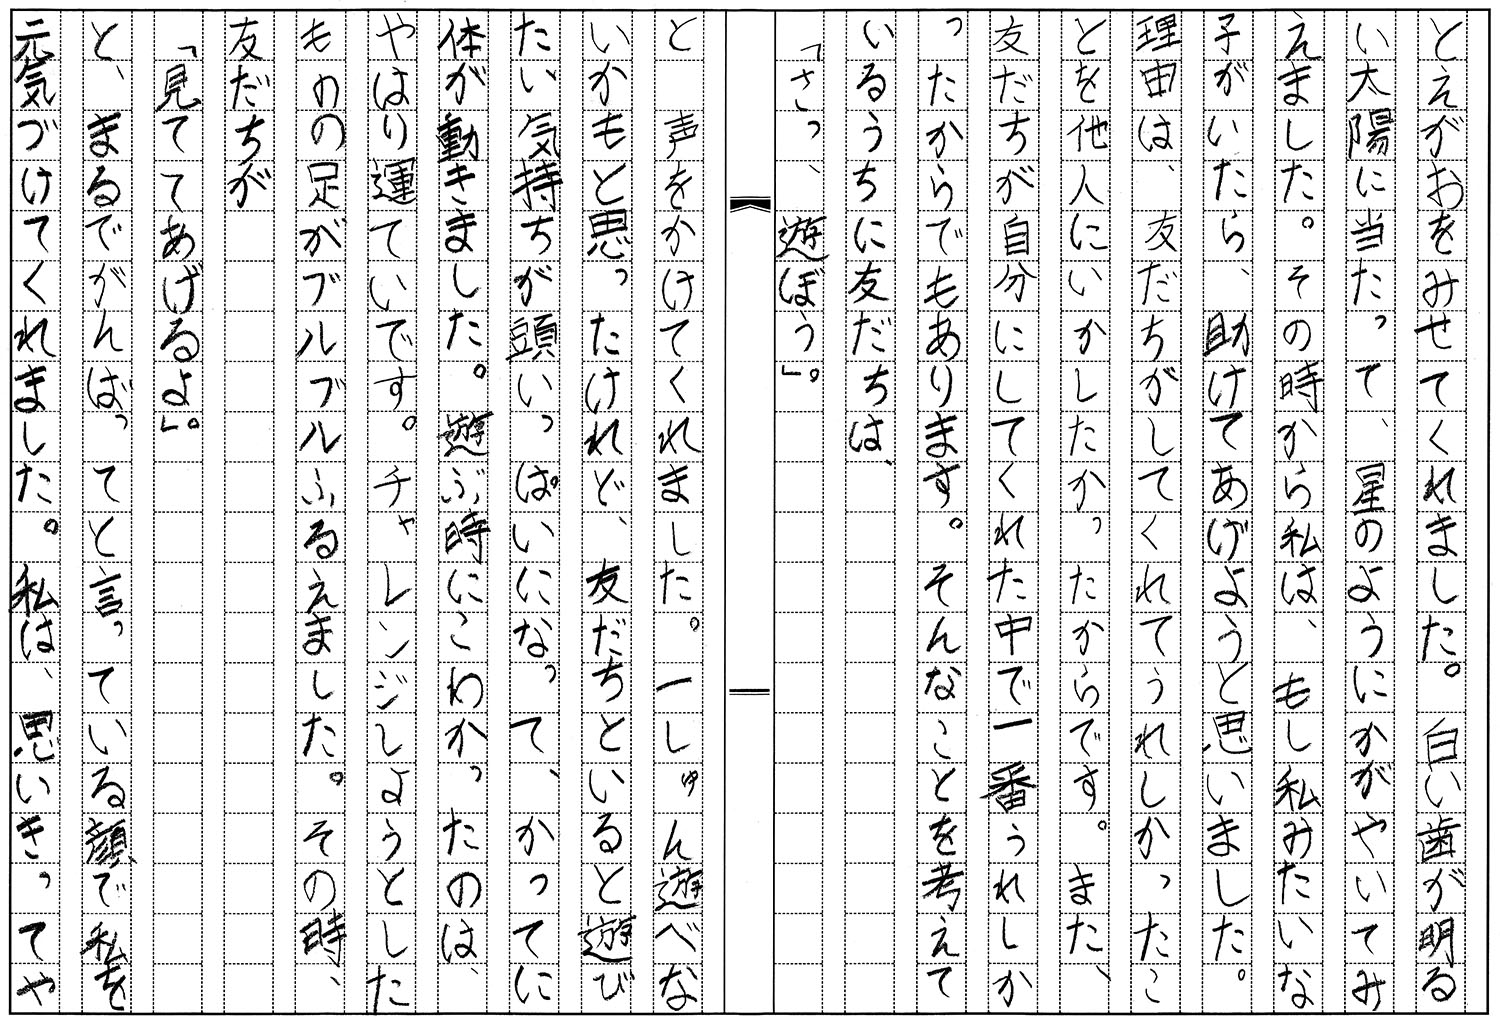 とえがおをみせてくれました。白い歯が明る
い太陽に当たって、星のようにかがやいてみ
えました。その時から私は、もし私みたいな
子がいたら、助けてあげようと思いました。
理由は、友だちがしてくれてうれしかったこ
とを他人にいかしたかったからです。また、
友だちが自分にしてくれた中で一番うれしか
ったからでもあります。そんなことを考えて
いるうちに友だちは、
「さっ、遊ぼう」。
と声をかけてくれました。一しゅん遊べな
いかもと思ったけれど、友だちといると遊び
たい気持ちが頭いっぱいになって、かってに
体が動きました。遊ぶ時にこわかったのは、
やはり運ていです。チャレンジしようとした
ものの足がブルブルふるえました。その時、
友だちが
「見ててあげるよ」。
と、まるでがんばってと言っている顔で私を
元気づけてくれました。私は、思いきってや